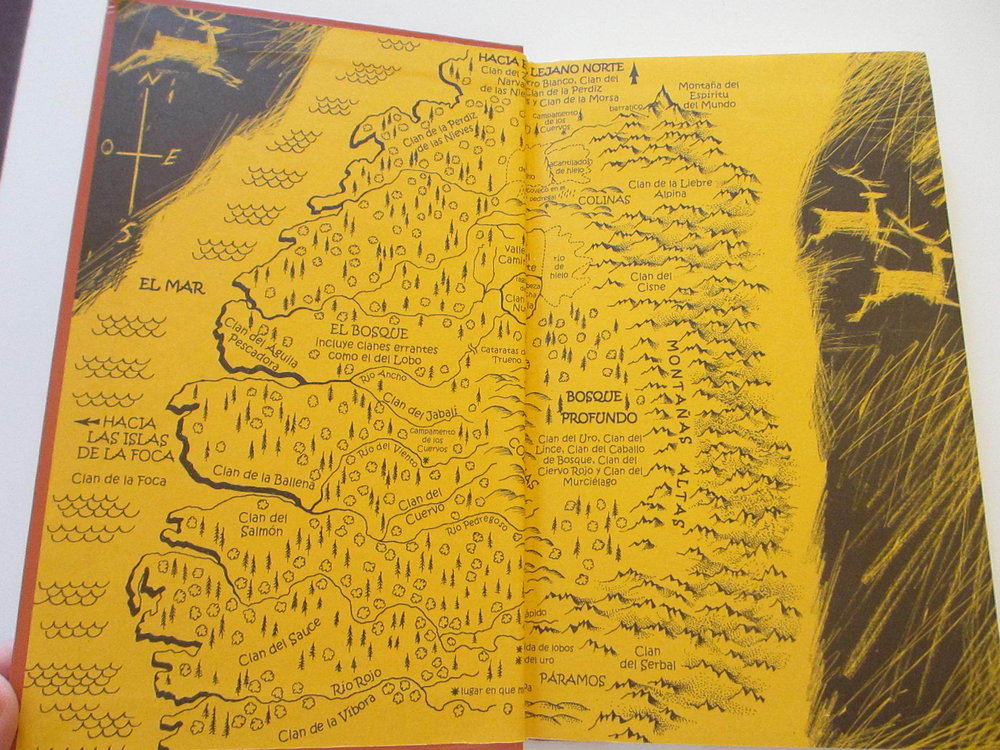 N
O
E
S
HACIA E LEJANO NORTE
Clan del
Narva
de las Nie
rro Blanco, Clan del
Clan de la Perdiz
s y Clan de la Morsa
Montaña del
Espíritu
del Mundo
barranco
campamento
de los
Cuervos
Clan de la Perdiz
de las Nieves
acantilado
de hielo
Clan de la Liebre
Alpina
COLINAS
Valle
Cami
río
de
hielo
Clan del
Cisne
Clan
Nu
EL MAR
EL BOSQUE
incluye clanes errantes
como el del Lobo
Clan del Águila
Pescadora
cataratas d
Trueno
Río Ancho
Clan del Jabalí
MONTAÑAS ALTAS
BOSQUE
PROFUNDO
Clan del Uro, Clan del
Lince, Clan del Caballo
de Bosque, Clan del
Ciervo Rojo y Clan del
Murciélago
HACIA
LAS ISLAS
DE LA FOCA
Clan de la Foca
campamento
de los
Cuervos
Río del Viento
Clan de la Ballena
Clan del
Cuervo
Clan del
Salmón
Río Pedregoso
Clan del Sauce
ápido
ida de lobos
del uro
Clan
del Serbal
PÁRAMOS
Río Rojo
lugar en que m
Clan de la Víbora